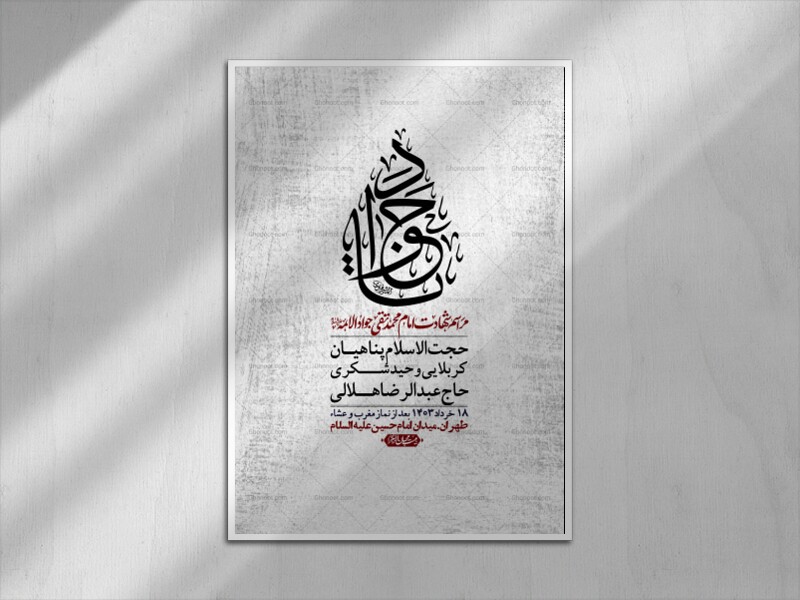 یا جواد
مراسم شهادت امام محمد تقی جواد الائمه
حجت‌الاسلام پناهیان
کربلایی وحید شکری
حاج عبدالرضا هلالی
۱۸ خرداد ۱۴۰۳ بعد از نماز مغرب و عشاء
طهران، میدان امام حسین علیه السلام
Ghonoot.com